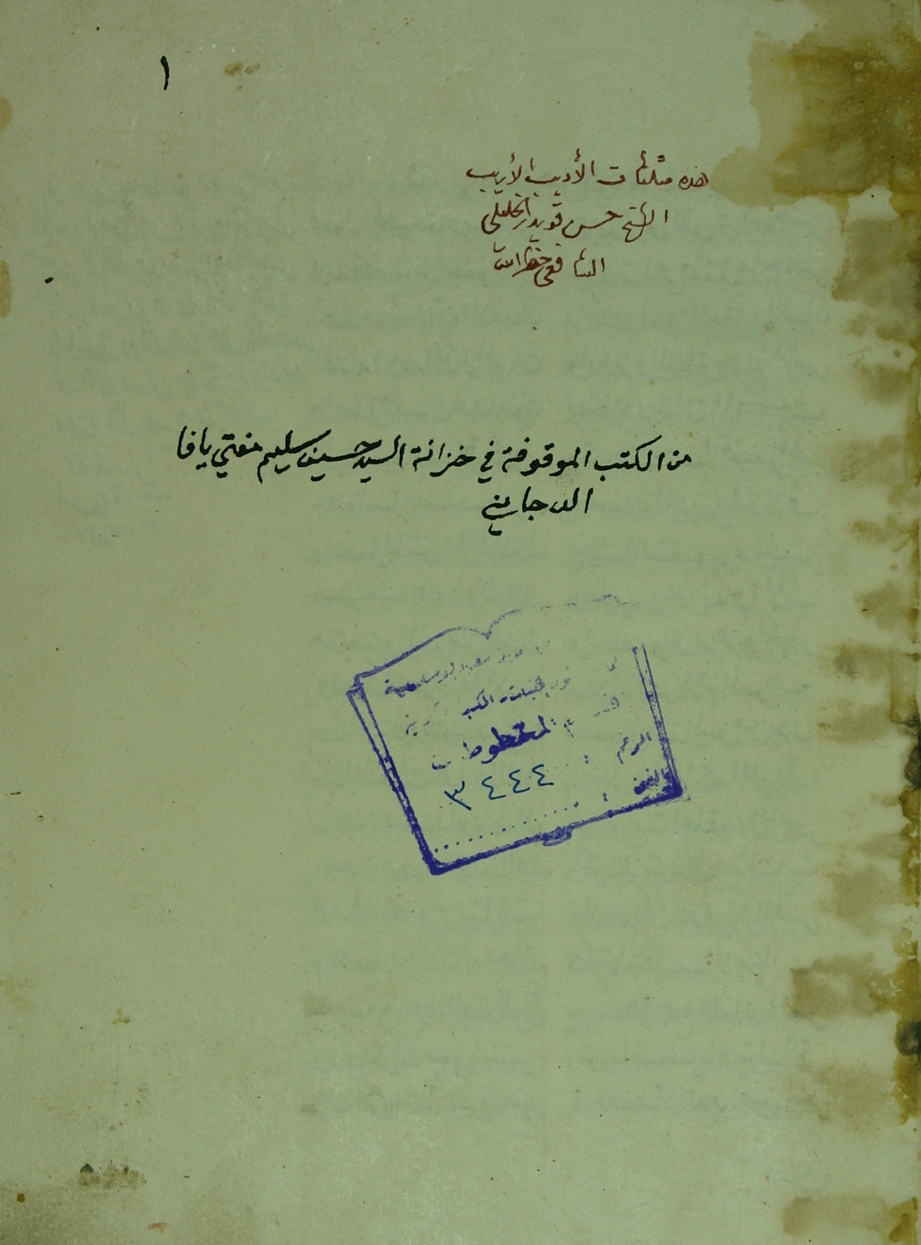 ١
هذه مثلثات الأديب الأريب
الشيخ حسن قويدر الخليلي
الشافعي حفظه الله
من الكتب الموقوفة في خزانة السيد حسين سليم مفتي يافا
الدجاني
قسم المخطوطات
الرقم : ٣٤٤٤
الفن :